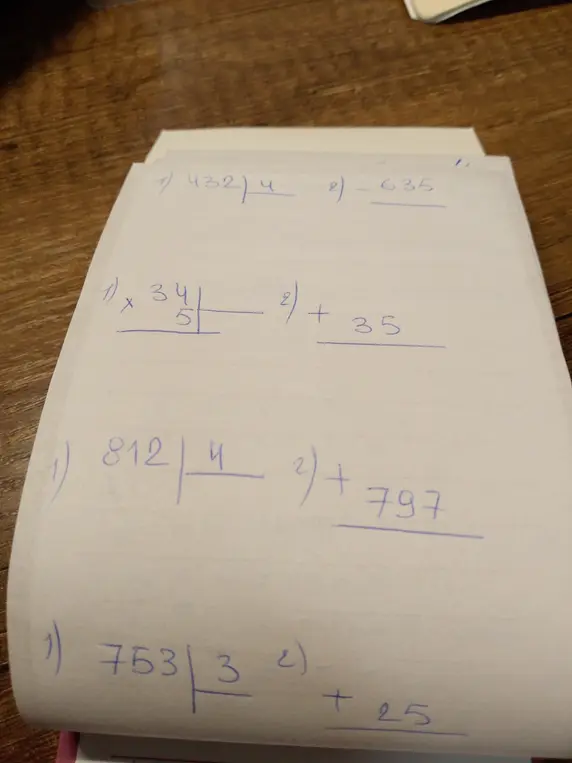 1) 432 4 2) - 635
1) × 34 2) +
5 35
1) 812 4 2) +
797
1) 753 3 2)
+ 25